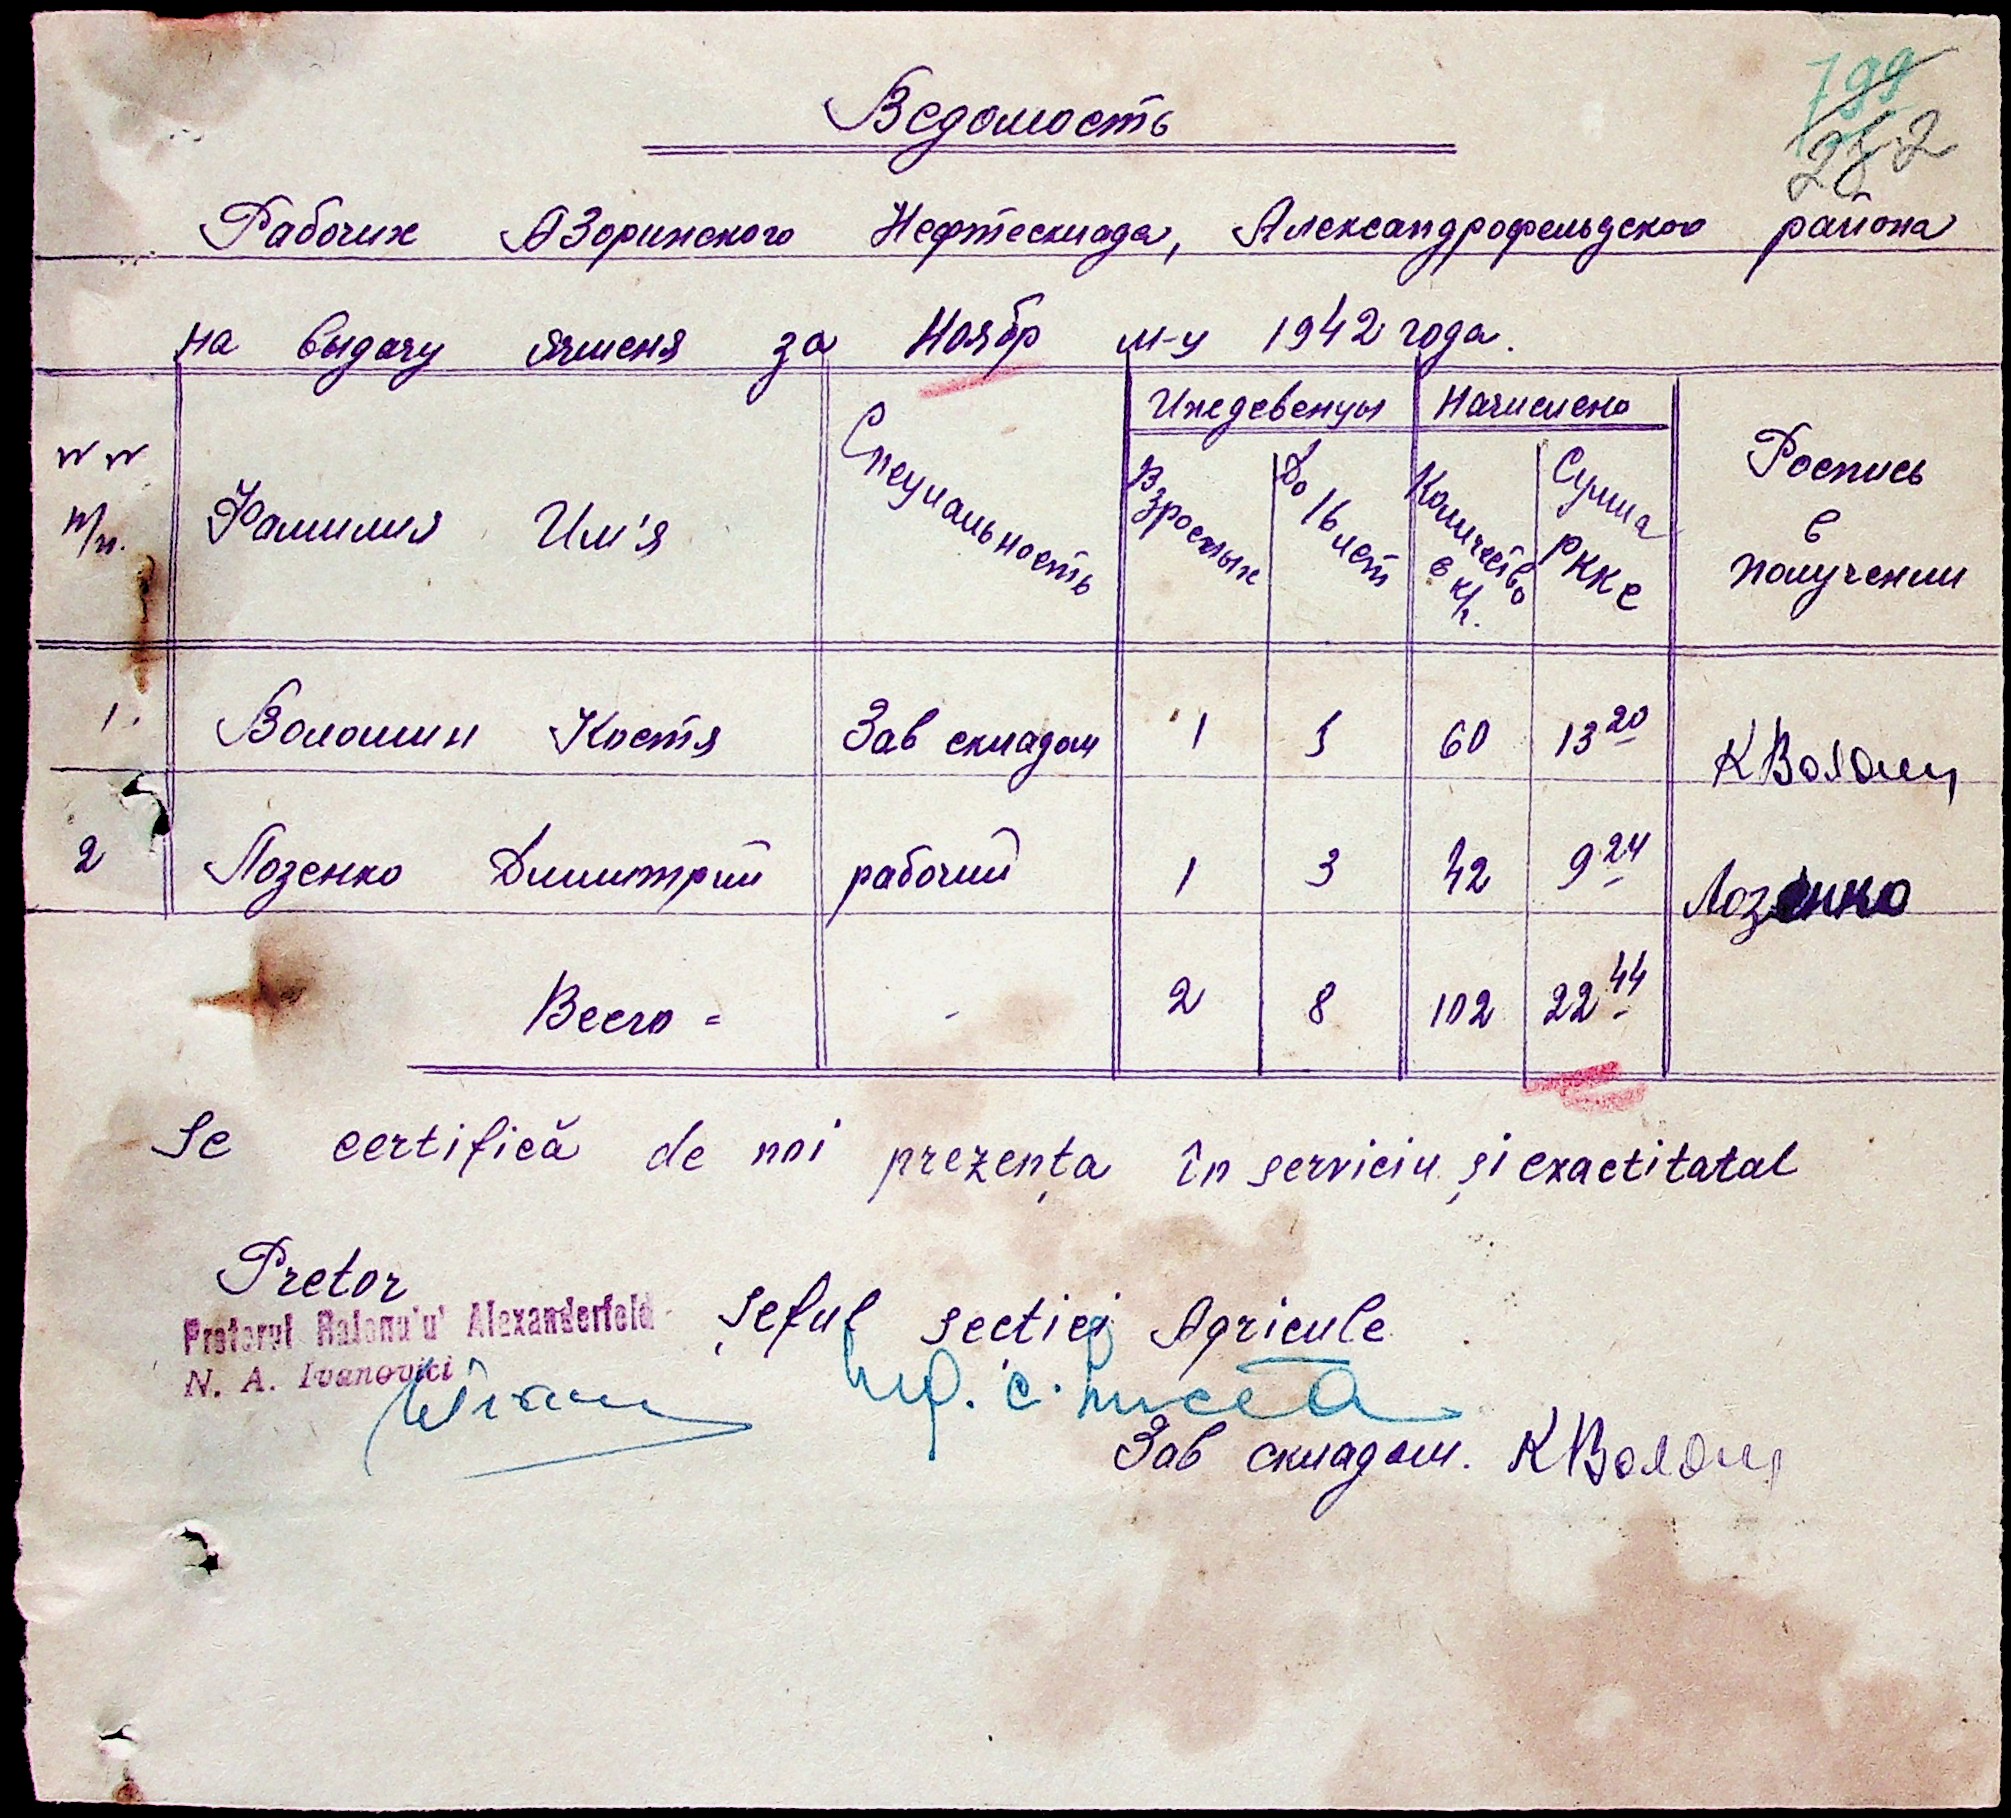 799
Ведомость
Рабочих АЗоринского Нефтесклада, Александрофельдского района
на выдачу ячменя за Ноябр м-ц 1942 года.
№ № п/п. Фамилия Им'я Специальность Иждевенцы Начислено Роспись в получении
Взрослых До 16 лет Количество в к/г. Сумма РККЕ
1. Волошин Костя Зав складом 1 5 60 13 20 КВолош
2 Лозенко Димитрий рабочий 1 3 42 9 24 Лозенко
Всего - - 2 8 102 22 44
Se certifică de noi prezența în serviciu și exactitatal
Pretor Șeful secției Agricule
Pretorul Raionului Alexanderfeld
N. A. Ivanovici
Зав складом. КВолош